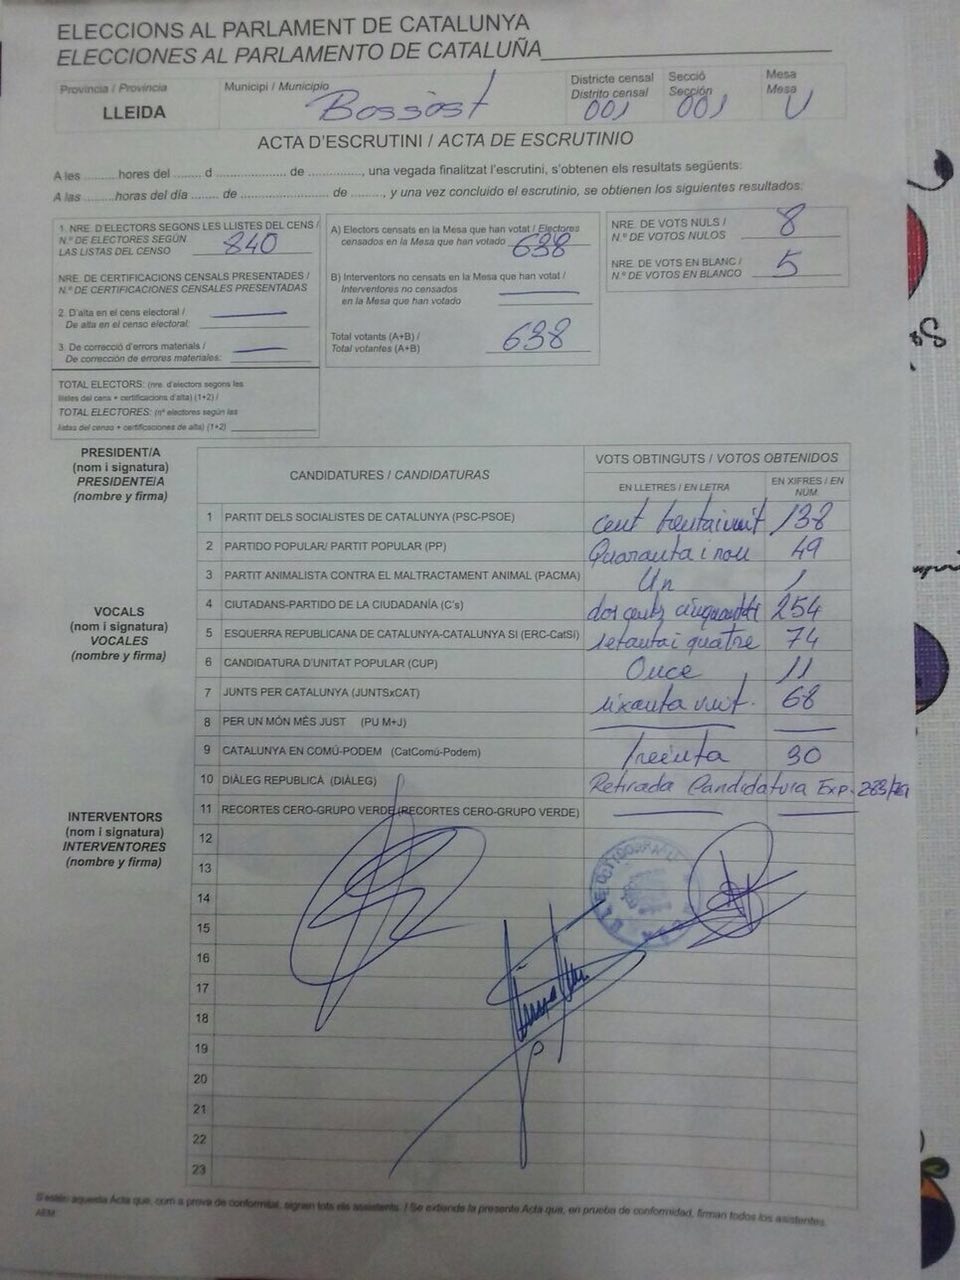 ELECCIONS AL PARLAMENT DE CATALUNYA
ELECCIONES AL PARLAMENTO DE CATALUÑA
Província / Provincia
LLEIDA
Municipi / Municipio
Bossòst
Districte censal
Distrito censal
001
Secció
Sección
001
Mesa
Mesa
U
ACTA D'ESCRUTINI / ACTA DE ESCRUTINIO
A les ......... hores del ....... d .................... de ..............., una vegada finalitzat l'escrutini, s'obtenen els resultats següents:
A las .........horas del día ....... de ............................ de ........, y una vez concluido el escrutinio, se obtienen los siguientes resultados:
1. NRE. D'ELECTORS SEGONS LES LLISTES DEL CENS /
N.º DE ELECTORES SEGÚN
LAS LISTAS DEL CENSO 840
NRE. DE CERTIFICACIONS CENSALS PRESENTADES /
N.º DE CERTIFICACIONES CENSALES PRESENTADAS
2. D'alta en el cens electoral /
De alta en el censo electoral:
3. De correcció d'errors materials /
De corrección de errores materiales:
TOTAL ELECTORS: (nre. d'electors segons les
llistes del cens + certificacions d'alta) (1+2) /
TOTAL ELECTORES: (nº electores según las
listas del censo + certificaciones de alta) (1+2)
A) Electors censats en la Mesa que han votat / Electores
censados en la Mesa que han votado 638
B) Interventors no censats en la Mesa que han votat /
Interventores no censados
en la Mesa que han votado
Total votants (A+B) /
Total votantes (A+B) 638
NRE. DE VOTS NULS /
N.º DE VOTOS NULOS 8
NRE. DE VOTS EN BLANC /
N.º DE VOTOS EN BLANCO 5
PRESIDENT/A
(nom i signatura)
PRESIDENTE/A
(nombre y firma)
VOCALS
(nom i signatura)
VOCALES
(nombre y firma)
INTERVENTORS
(nom i signatura)
INTERVENTORES
(nombre y firma)
CANDIDATURES / CANDIDATURAS
VOTS OBTINGUTS / VOTOS OBTENIDOS
EN LLETRES / EN LETRA
EN XIFRES / EN NÚM.
1 PARTIT DELS SOCIALISTES DE CATALUNYA (PSC-PSOE) cent trentaivuit 138
2 PARTIDO POPULAR/ PARTIT POPULAR (PP) Quaranta i nou 49
3 PARTIT ANIMALISTA CONTRA EL MALTRACTAMENT ANIMAL (PACMA) Un 1
4 CIUTADANS-PARTIDO DE LA CIUDADANÍA (C's) dos cents 254
5 ESQUERRA REPUBLICANA DE CATALUNYA-CATALUNYA SÍ (ERC-CatSí) setanta i quatre 74
6 CANDIDATURA D'UNITAT POPULAR (CUP) Once 11
7 JUNTS PER CATALUNYA (JUNTSxCAT) sixanta vuit. 68
8 PER UN MÓN MÉS JUST (PU M+J)
9 CATALUNYA EN COMÚ-PODEM (CatComú-Podem) Treinta 30
10 DIÀLEG REPUBLICÀ (DIÀLEG) Retirada Candidatura Exp.
11 RECORTES CERO-GRUPO VERDE (RECORTES CERO-GRUPO VERDE)
12
13
14
15
16
17
18
19
20
21
22
23
S'estén aquesta Acta que, com a prova de conformitat, signen tots els assistents. / Se extiende la presente Acta que, en prueba de conformidad, firman todos los asistentes.